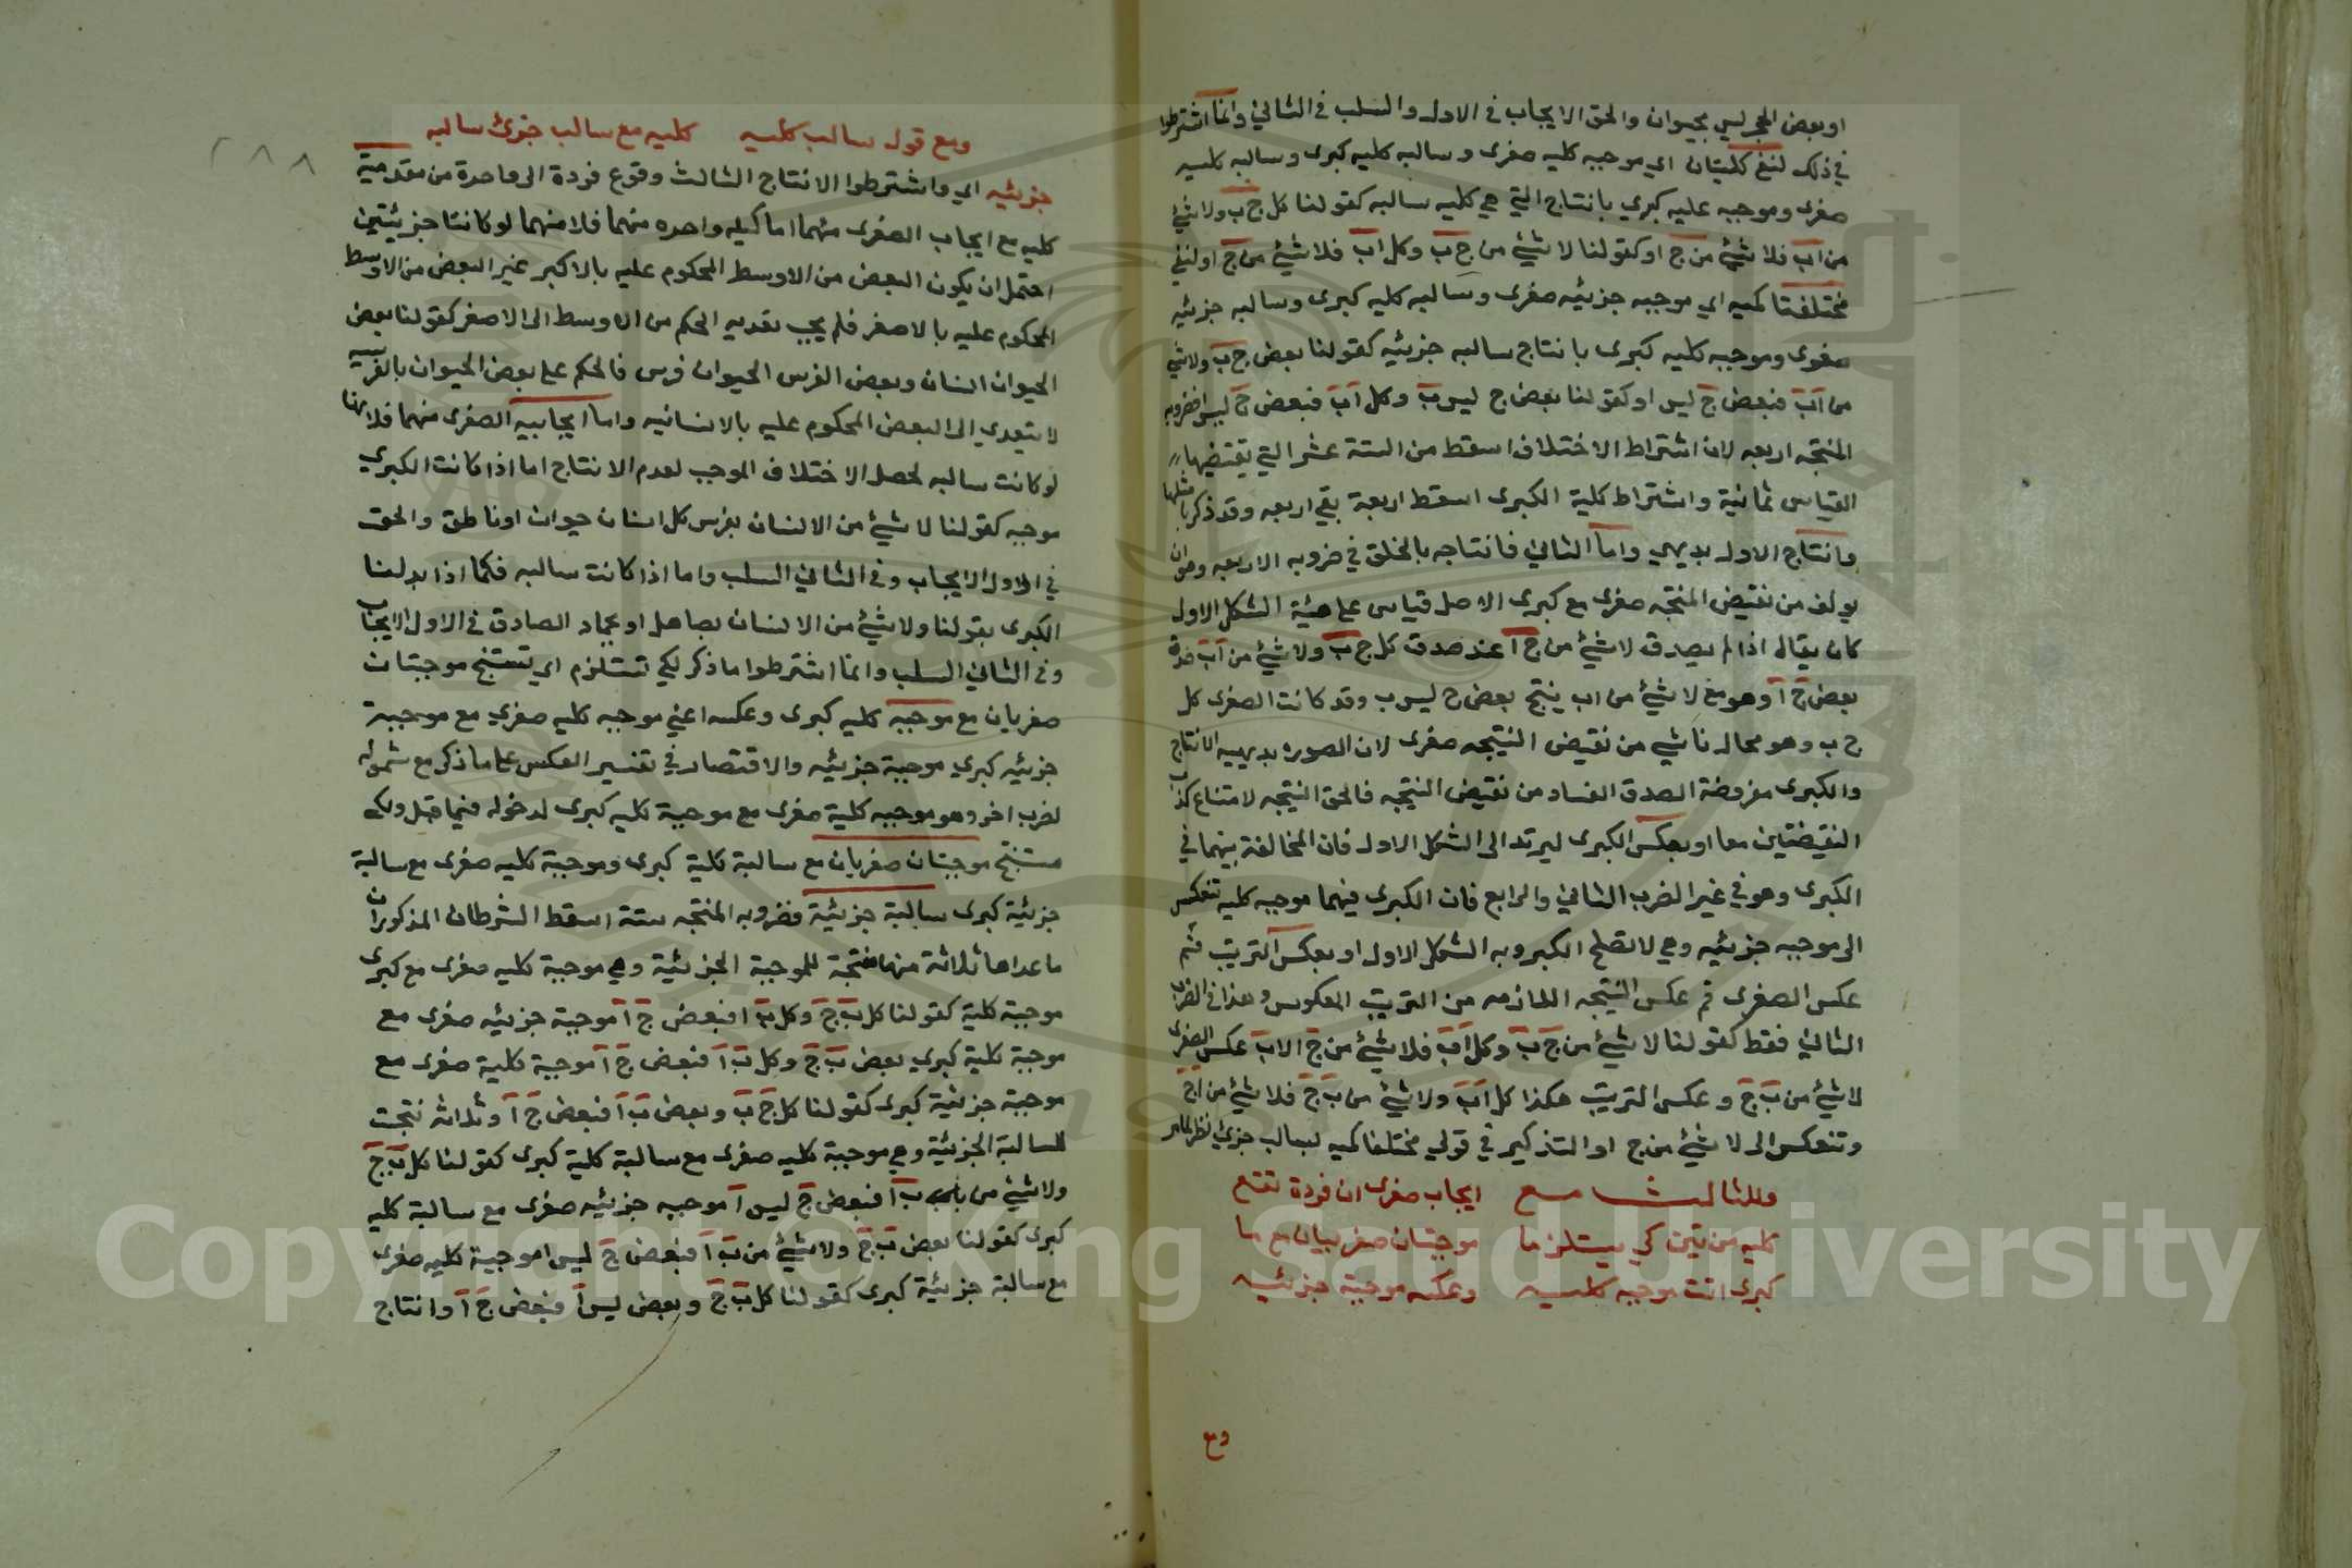 او بعض الحجر ليس بحيوان والحق الايجاب في الاول والسلب في الثاني وانما اشترطوا
في ذلك لتنتج كليتان اي موجبه كليه صغرى وسالبه كليه كبرى وسالبه كليه
صغرى وموجبه عليه كبري بانتاج التي هي كليه سالبه كقولنا كل ج ب ولا شئ
من اب فلا شئ من ج او كقولنا لا شئ من ج ب وكل اب فلا شئ من ج او لتنتج
مختلفتا كميه اي موجبه جزئيه صغرى وسالبه كليه كبرى وسالبه جزئيه
صغرى وموجبه كليه كبرى بانتاج سالبه جزئيه كقولنا بعض ج ب ولا شئ
من اب فبعض ج ليس او كقولنا بعض ج ليس ب وكل اب فبعض ج ليس ا فضروبه
المنتجه اربعه لان اشتراط الاختلاف اسقط من الستة عشر التي يقتضيها
القياس ثمانية واشتراط كلية الكبرى اسقط اربعة بقي اربعه وقد ذكر بامثلها
وانتاج الاول بديهي واما الثاني فانتاجه بالخلق في ضروبه الاربعه وهو ان
يولف من نقيض المنتجه صغرى مع كبرى الاصل قياس على هيئة الشكل الاول
كان يقال اذا لم يصدق لا شئ من ج ا عند صدق كل ج ب ولا شئ من اب صدق
بعض ج ا وهو مع لا شئ من اب ينتج بعض ج ليس ب وقد كانت الصغرى كل
ج ب وهو محال ناشي من نقيض النتيجه صغرى لان الصوره بديهيه الانتاج
والكبرى مفروضة الصدق الفساد من نقيض النتيجه فالحق النتيجه لامتناع كذب
النقيضتين معا او بعكس الكبرى ليرتد الى الشكل الاول فان المخالفة بينهما في
الكبرى وهو في غير الضرب الثاني والرابع فان الكبرى فيهما موجبه كليه تنعكس
الى موجبه جزئيه وهي لا تصلح الكبروبه الشكل الاول او بعكس الترتيب ثم
عكس الصغرى ثم عكس النتيجه اللازمه من الترتيب المعكوس وهذا في الضرب
الثاني فقط كقولنا لا شئ من ج ب وكل اب فلا شئ من ج الاب عكس الصغرى
لا شئ من ب ج وعكس الترتيب هكذا كل اب ولا شئ من ب ج فلا شئ من ا ج
وتنعكس الى لا شئ من ج ا والتذكير في قولي مختلفا كميه لسالب جزئي نظر
وللثالث مع ايجاب صغرى ان فردة تقع
كليه من تين كي يستلزما موجبتان صغريان مع ما
كبرى اتت موجبه كليه وعكسه موجبة جزئيه
وع
٢٨٨
ومع قول سالب كليه كليه مع سالب جزئ سالبه
جزئيه اي واشترطوا الانتاج الثالث وقوع فردة اى واحدة من مقدمتيه
كليه مع ايجاب الصغرى منهما اما كليه واحده منهما فلانهما لو كانتا جزئيتين
احتمل ان يكون البعض من الاوسط المحكوم عليه بالاكبر غير البعض من الاوسط
المحكوم عليه بالاصغر فلم يجب تعديه الحكم من الاوسط الى الاصغر كقولنا بعض
الحيوان انسان وبعض الفرس الحيوان فرس فالحكم على بعض الحيوان بالفرسيه
لا يتعدي الى البعض المحكوم عليه بالانسانيه واما ايجابيه الصغرى منهما فلانها
لو كانت سالبه لحصل الاختلاف الموجب لعدم الانتاج اما اذا كانت الكبري
موجبه كقولنا لا شئ من الانسان بفرس كل انسان حيوان او ناطق والحق
في الاول الايجاب وفي الثاني السلب واما اذا كانت سالبه فكما اذا بدلنا
الكبرى بقولنا ولا شئ من الانسان بصاهل او بجماد الصادق في الاول الايجاب
وفي الثاني السلب وانما اشترطوا ما ذكر لكي تستلزم اي تستنتج موجبتان
صغريان مع موجبه كليه كبرى وعكسه اعني موجبه كليه صغرى مع موجبة
جزئيه كبري موجبة جزئيه والاقتصار في تفسير العكس على ما ذكر مع شموله
لضرب اخر وهو موجبه كلية صغرى مع موجبة كليه كبرى لدخوله فيما قبل ولكي
تستنتج موجبتان صغريان مع سالبة كلية كبرى وموجبة كليه صغرى مع سالبة
جزئية كبرى سالبة جزئية فضروبه المنتجه ستة اسقط الشرطان المذكوران
ما عداها ثلاثة منها منتجة للموجبة الجزئية وهي موجبة كليه صغرى مع كبرى
موجبة كلية كقولنا كل ب ج وكل ب ا فبعض ج ا موجبة جزئيه صغرى مع
موجبة كلية كبري بعض ب ج وكل ب ا فبعض ج ا موجبة كلية صغرى مع
موجبة جزئية كبرى كقولنا كل ج ب وبعض ب ا فبعض ج ا وثلاثه نتجت
للسالبة الجزئية وهي موجبة كليه صغرى مع سالبة كلية كبرى كقولنا كل ب ج
ولا شئ من ب ا فبعض ج ليس ا موجبه جزئيه صغرى مع سالبة كليه
كبرى كقولنا بعض ب ج ولا شئ من ب ا فبعض ج ليس ا موجبة كليه صغرى
مع سالبة جزئية كبرى كقولنا كل ب ج وبعض ليس ا فبعض ج ا وانتاج
Copyright © King Saud University